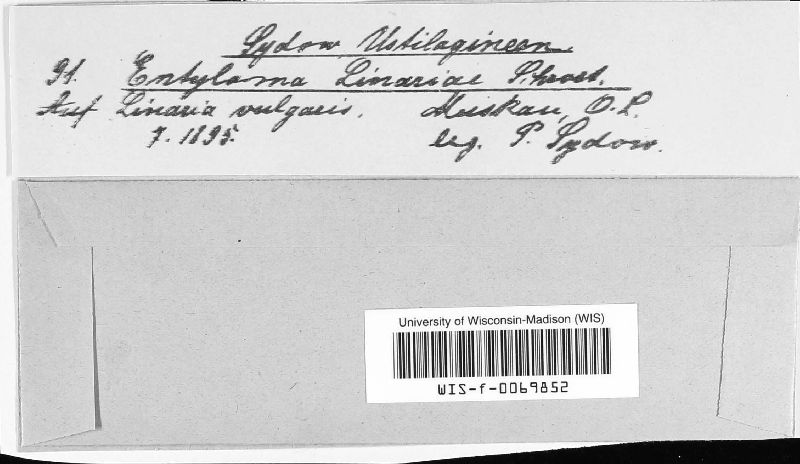 Sydow, Ustilagineen.
91. Entyloma Linariae Schroet.
Auf Linaria vulgaris. Muskau, O.L.
7. 1895. leg. P. Sydow.
University of Wisconsin-Madison (WIS)
WIS-f-0069852